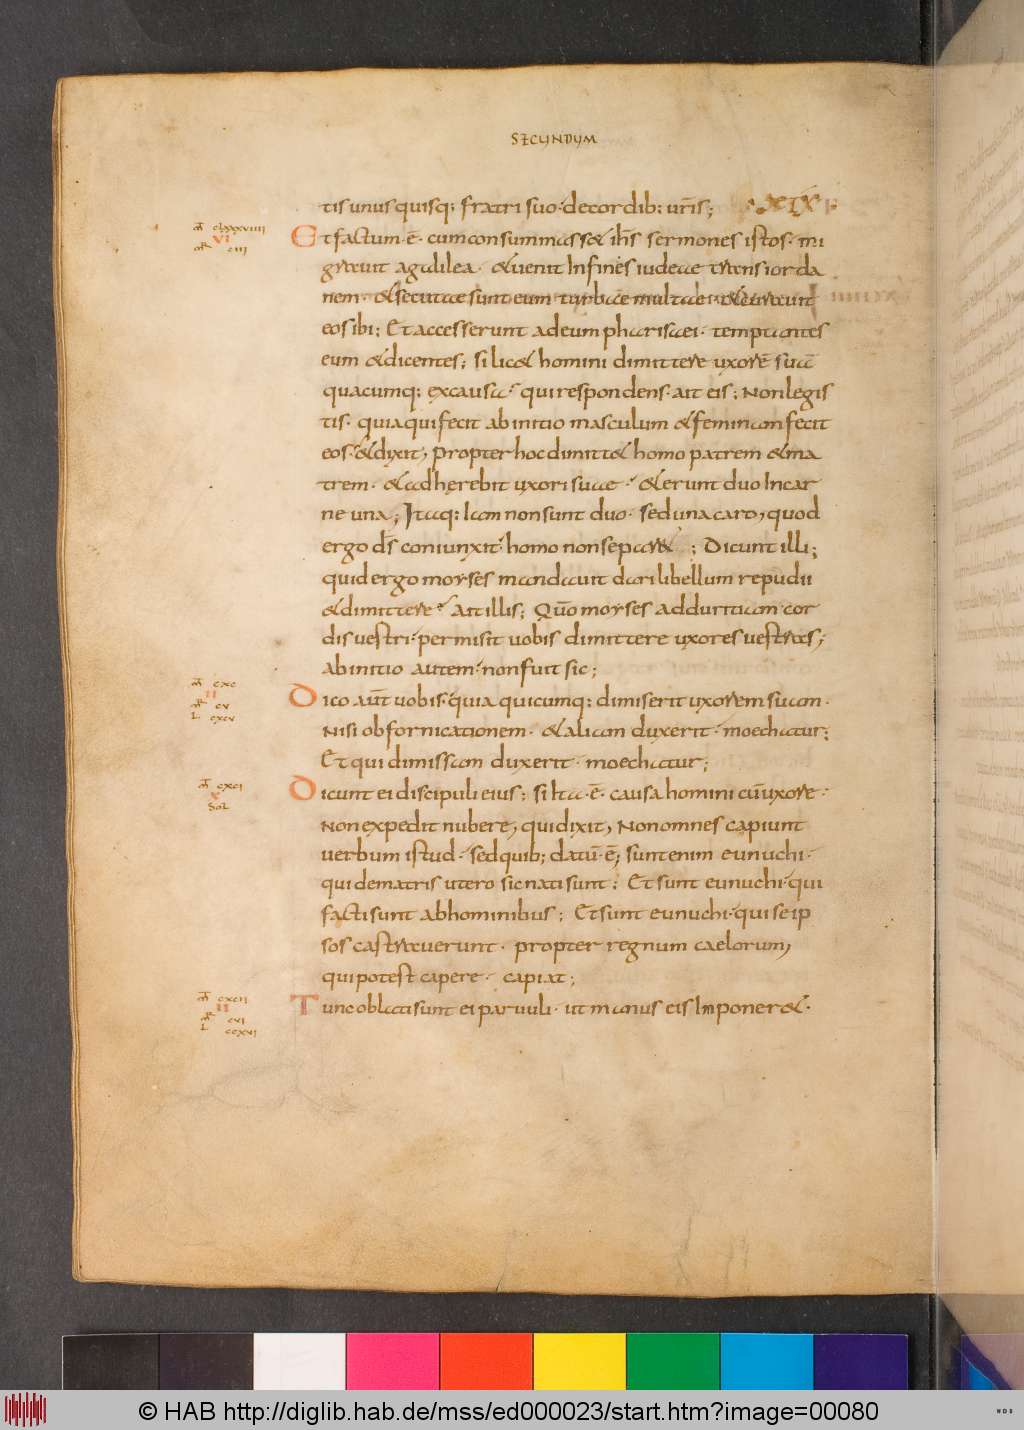 SECUNDUM
tis unusquisq; fratri suo · de cordib; ur̄is; XIX
m̄ clxxxviiii
VI
mr̄ ciii
Et factum · ē · cum consummasset ih̄s sermones istos · mi
grauit a galilea · & uenit In fines iudeae trans iorda
nem · & secutae sunt eum turbae multae · & curauit
eos ibi; Et accesserunt ad eum pharisaei · temptantes
eum & dicentes; si lic& homini dimittere uxorē suā
quacumq; ex causa · qui respondens · ait eis; Non legis
tis · quia qui fecit ab initio masculum & feminam fecit
eos · & dixit, propter hoc dimitt& homo patrem & ma
trem · & adherebit uxori suae · & erunt duo In car
ne una; Itaq; Iam non sunt duo · sed una caro, quod
ergo d̄s coniunxit · homo non separ&; Dicunt illi;
quid ergo moyses mandauit dari libellum repudii
& dimittere · Ait illis; Qūo moyses ad duritiam cor
dis uestri · permisit uobis dimittere uxores uestras;
ab initio autem · non fuit sic;
m̄ cxc
II
mr̄ cv
L cxcv
Dico aūt uobis · quia quicumq; dimiserit uxorem suam ·
Nisi ob fornicationem · & aliam duxerit · moechatur;
Et qui dimissam duxerit · moechatur;
m̄ cxci
X
Sol
Dicunt ei discipuli eius; si Ita · ē · causa homini cū uxore ·
Non expedit nubere, qui dixit, Non omnes capiunt
uerbum istud · sed quib; datū · ē; sunt enim eunuchi ·
qui de matris utero sic nati sunt; Et sunt eunuchi · qui
facti sunt ab hominibus; Et sunt eunuchi · qui se ip
sos castrauerunt · propter regnum caelorum,
qui potest capere · capiat;
m̄ cxcii
II
mr̄ cvi
L ccxvi
Tunc oblati sunt ei paruuli · ut manus eis Imponer& ·
© HAB http://diglib.hab.de/mss/ed000023/start.htm?image=00080